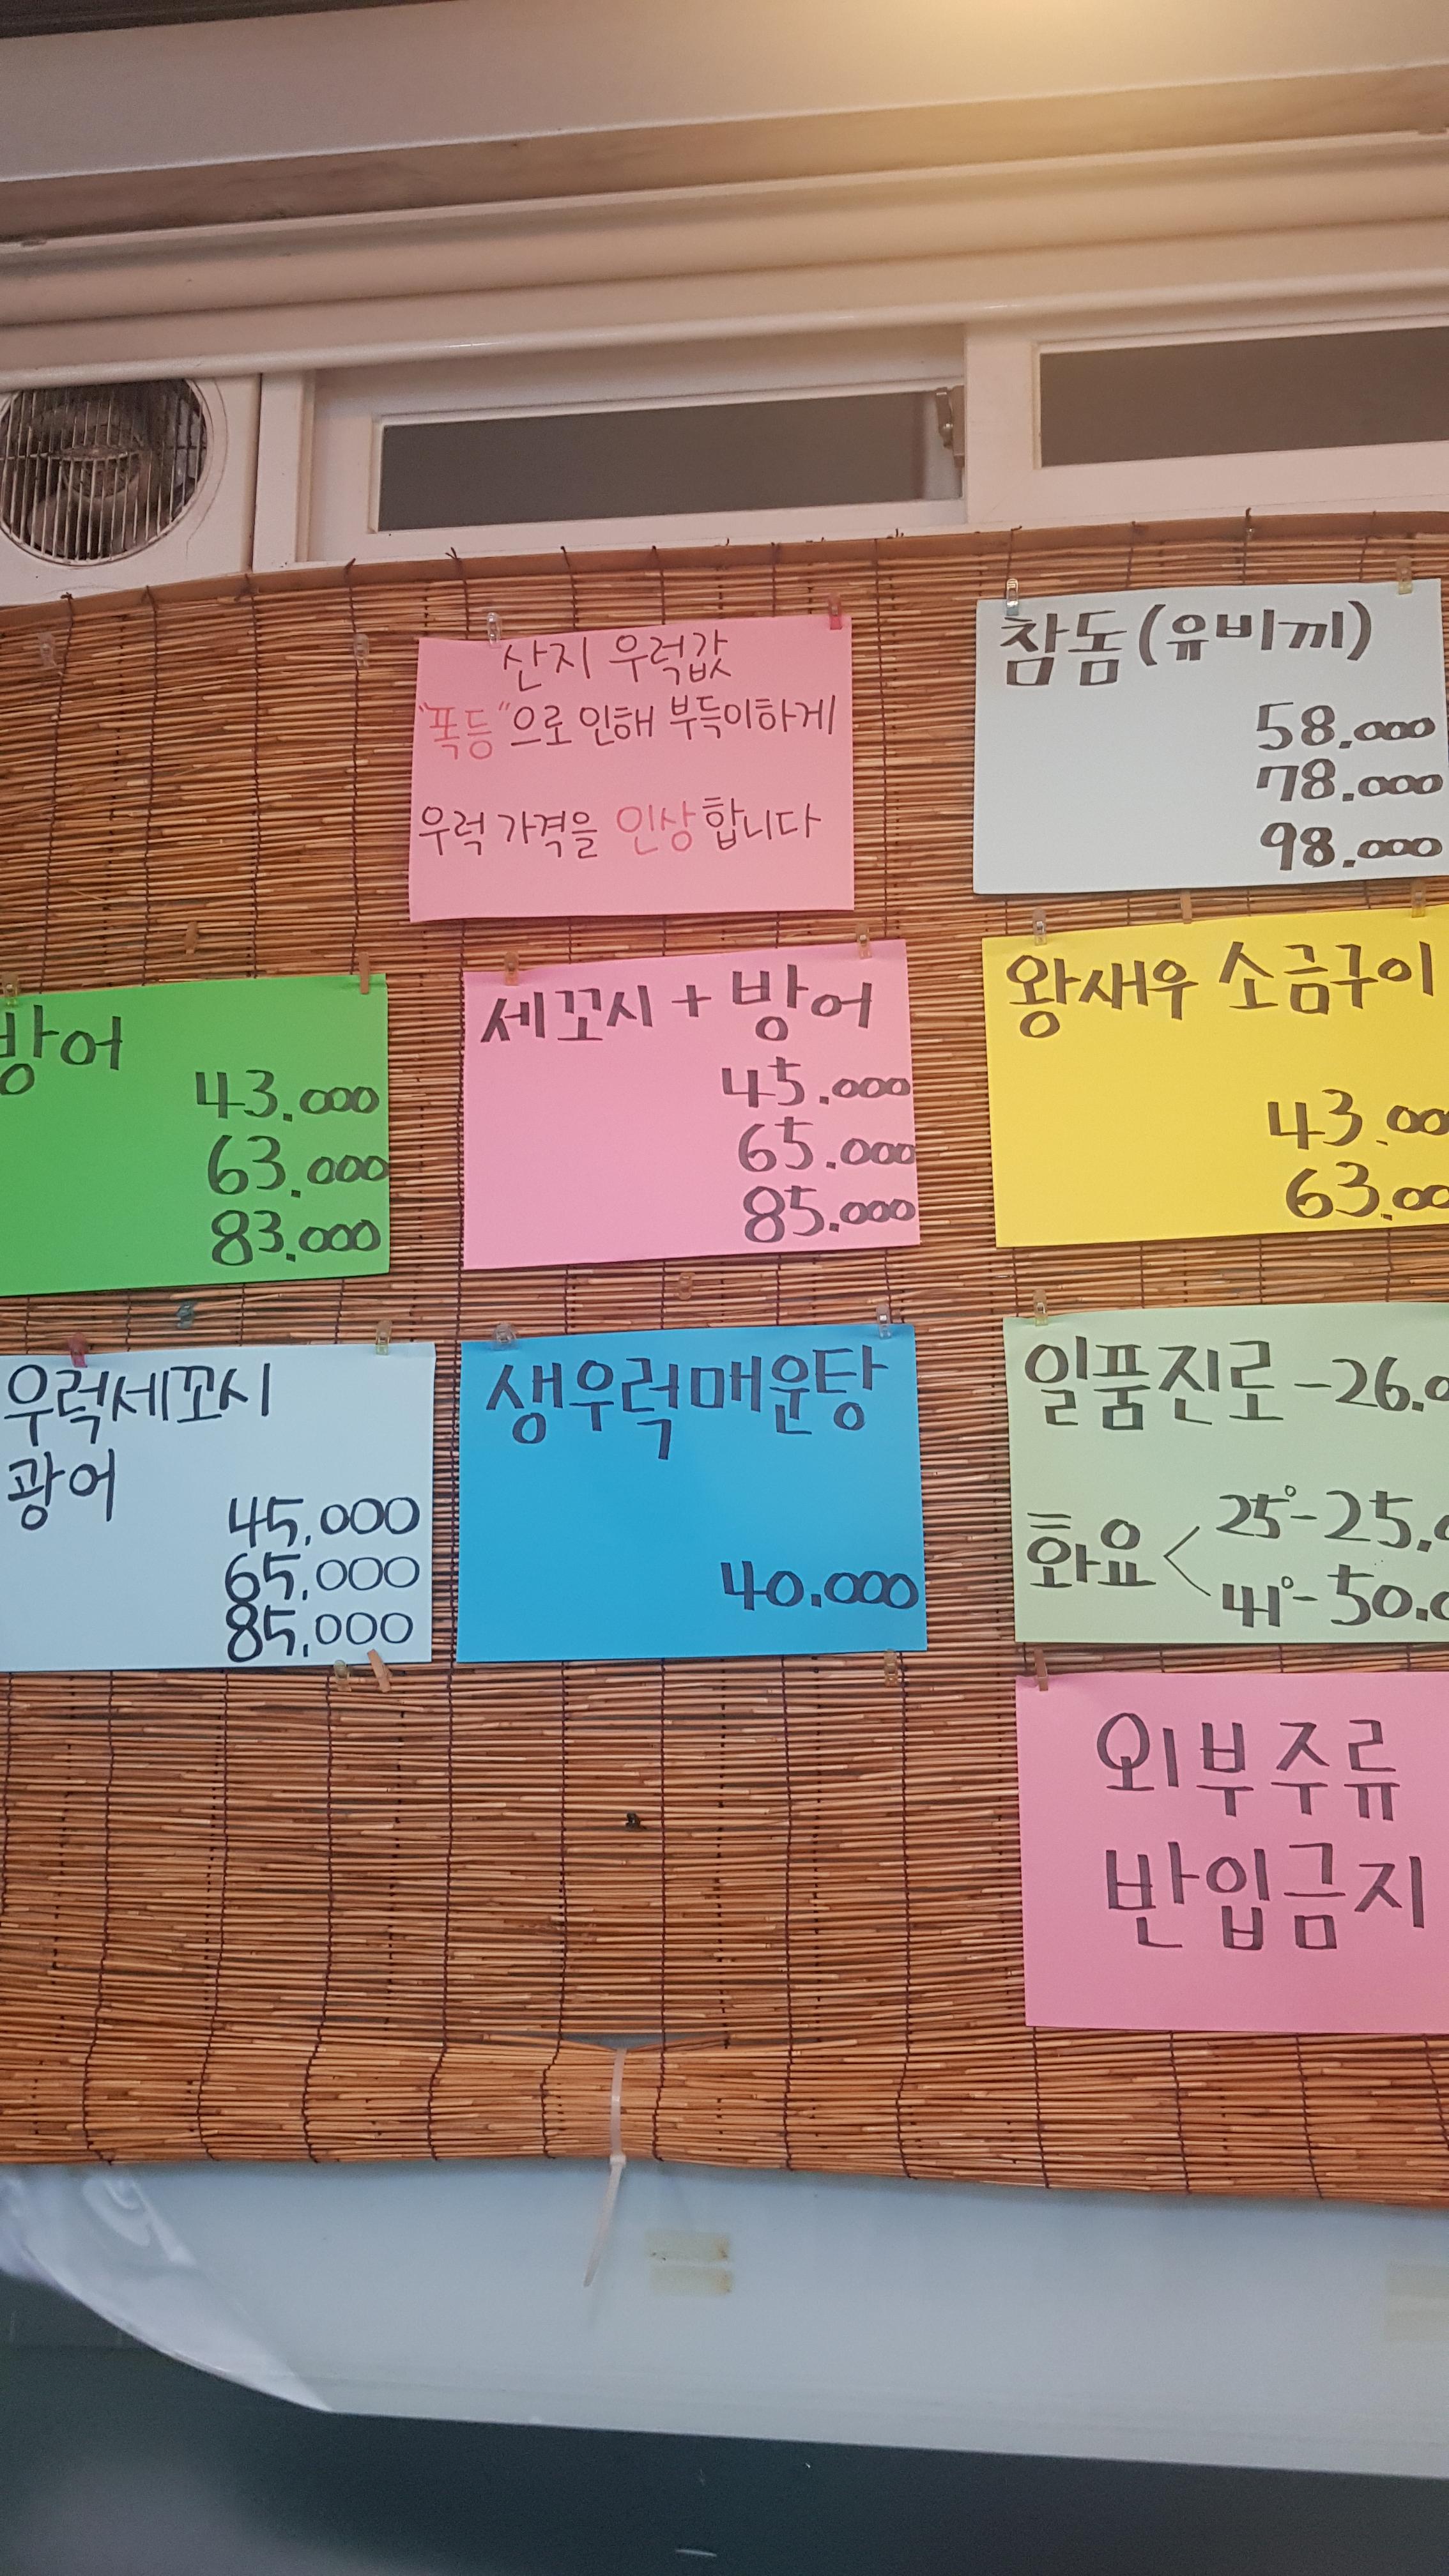 산지 우럭값
"폭등"으로 인해 부득이하게
우럭 가격을 인상합니다
참돔(유비끼)
58.000
78.000
98.000
방어
43.000
63.000
83.000
세꼬시 + 방어
45.000
65.000
85.000
왕새우 소금구이
43.00
63.00
우럭세꼬시
광어
45,000
65,000
85,000
생우럭매운탕
40.000
일품진로 -26.0
화요 < 25°-25.0
41°-50.0
외부주류
반입금지